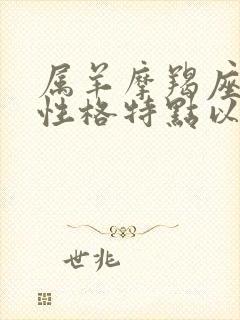 属羊摩羯座
性格特點以
世兆